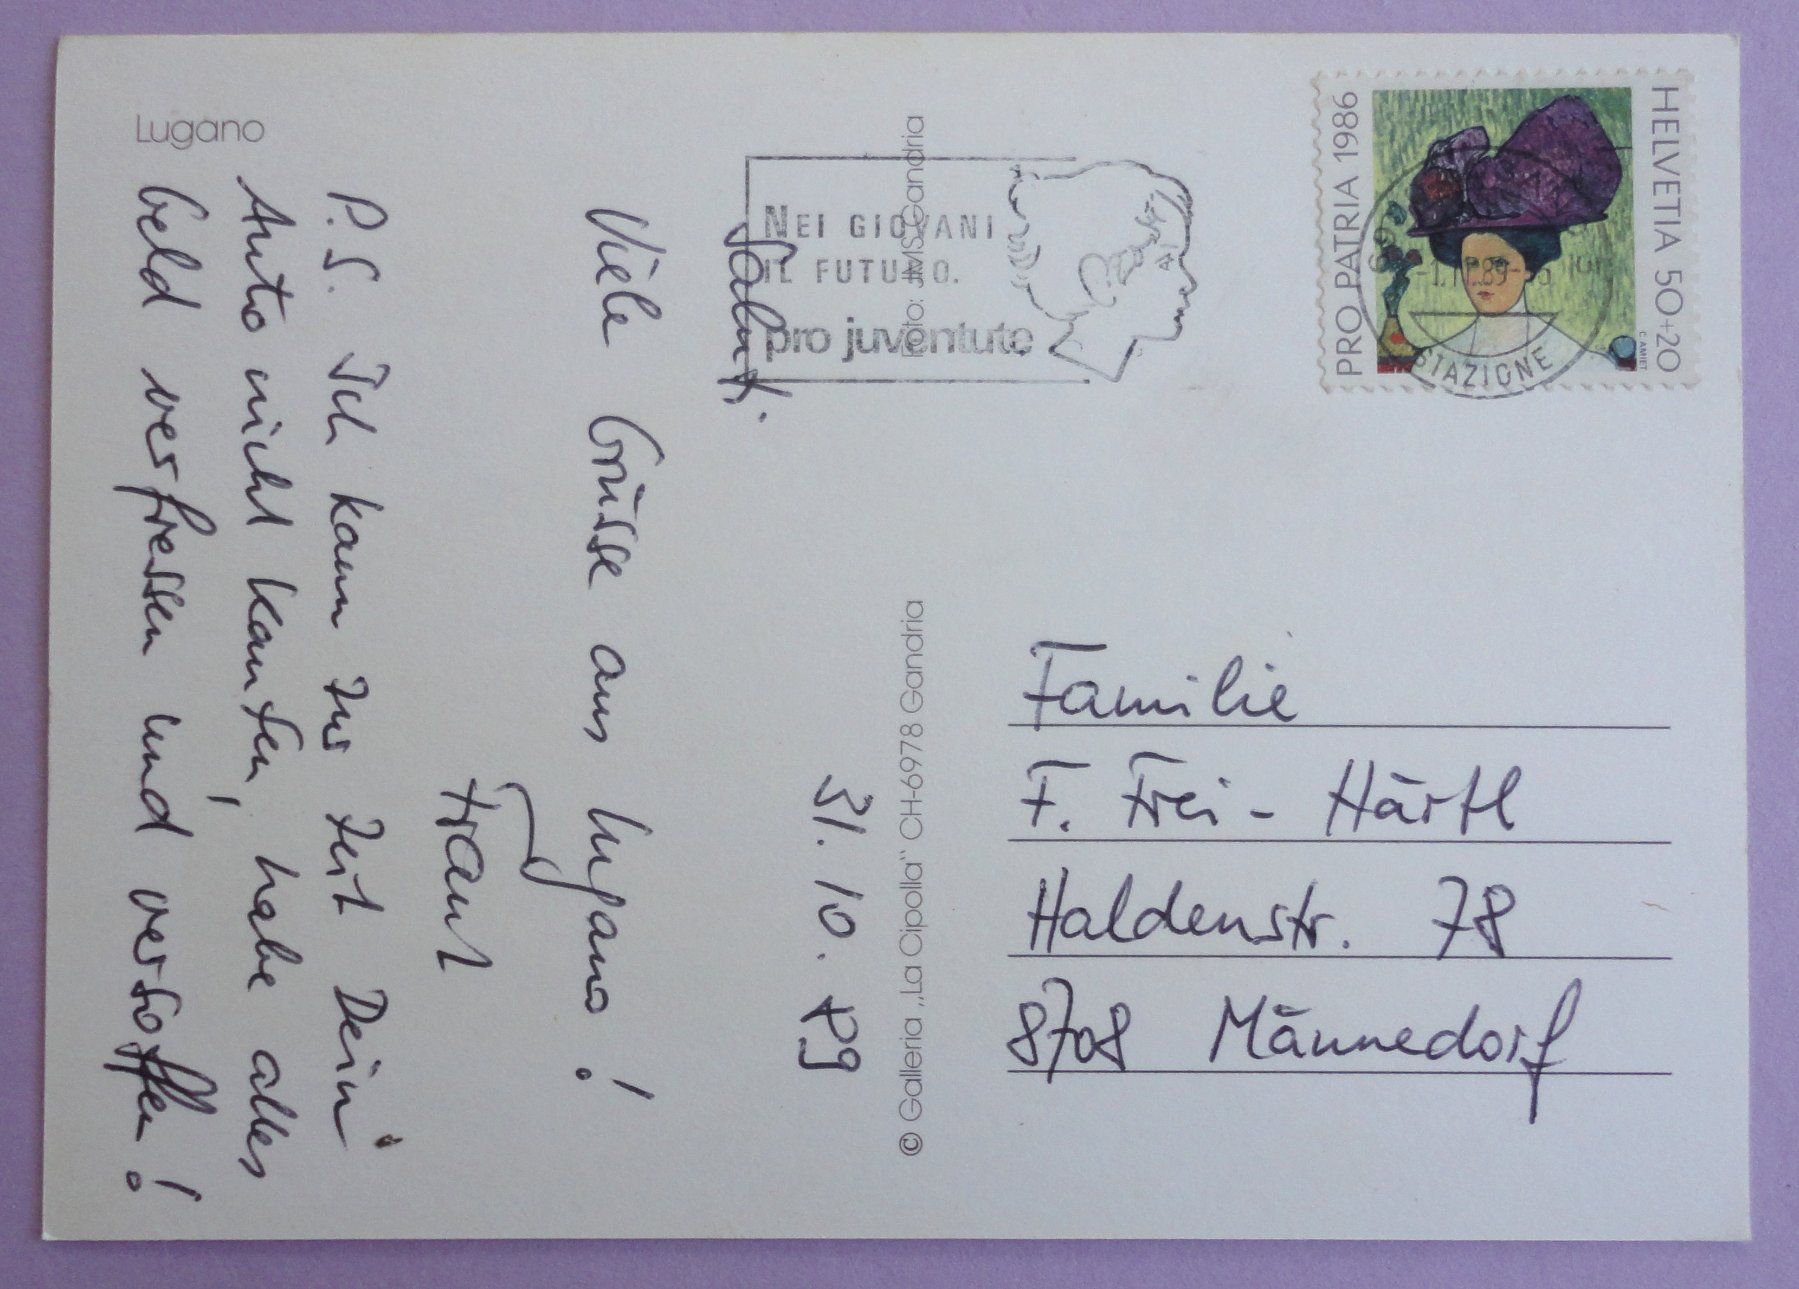 Lugano
31. 10. 89
Saluti.
Viele Grüsse aus Lugano!
P.S. Ich kann zur Zeit Dein
Auto nicht kaufen, habe alles
Geld verfressen und versoffen!
Foto: JMS Gandria
© Galleria „La Cipolla" CH-6978 Gandria
NEI GIOVANI
IL FUTURO.
pro juventute
PRO PATRIA 1986
HELVETIA 50+20
C. AMIET
STAZIONE
Familie
F. Frei - Härtl
Haldenstr. 78
8708 Männedorf